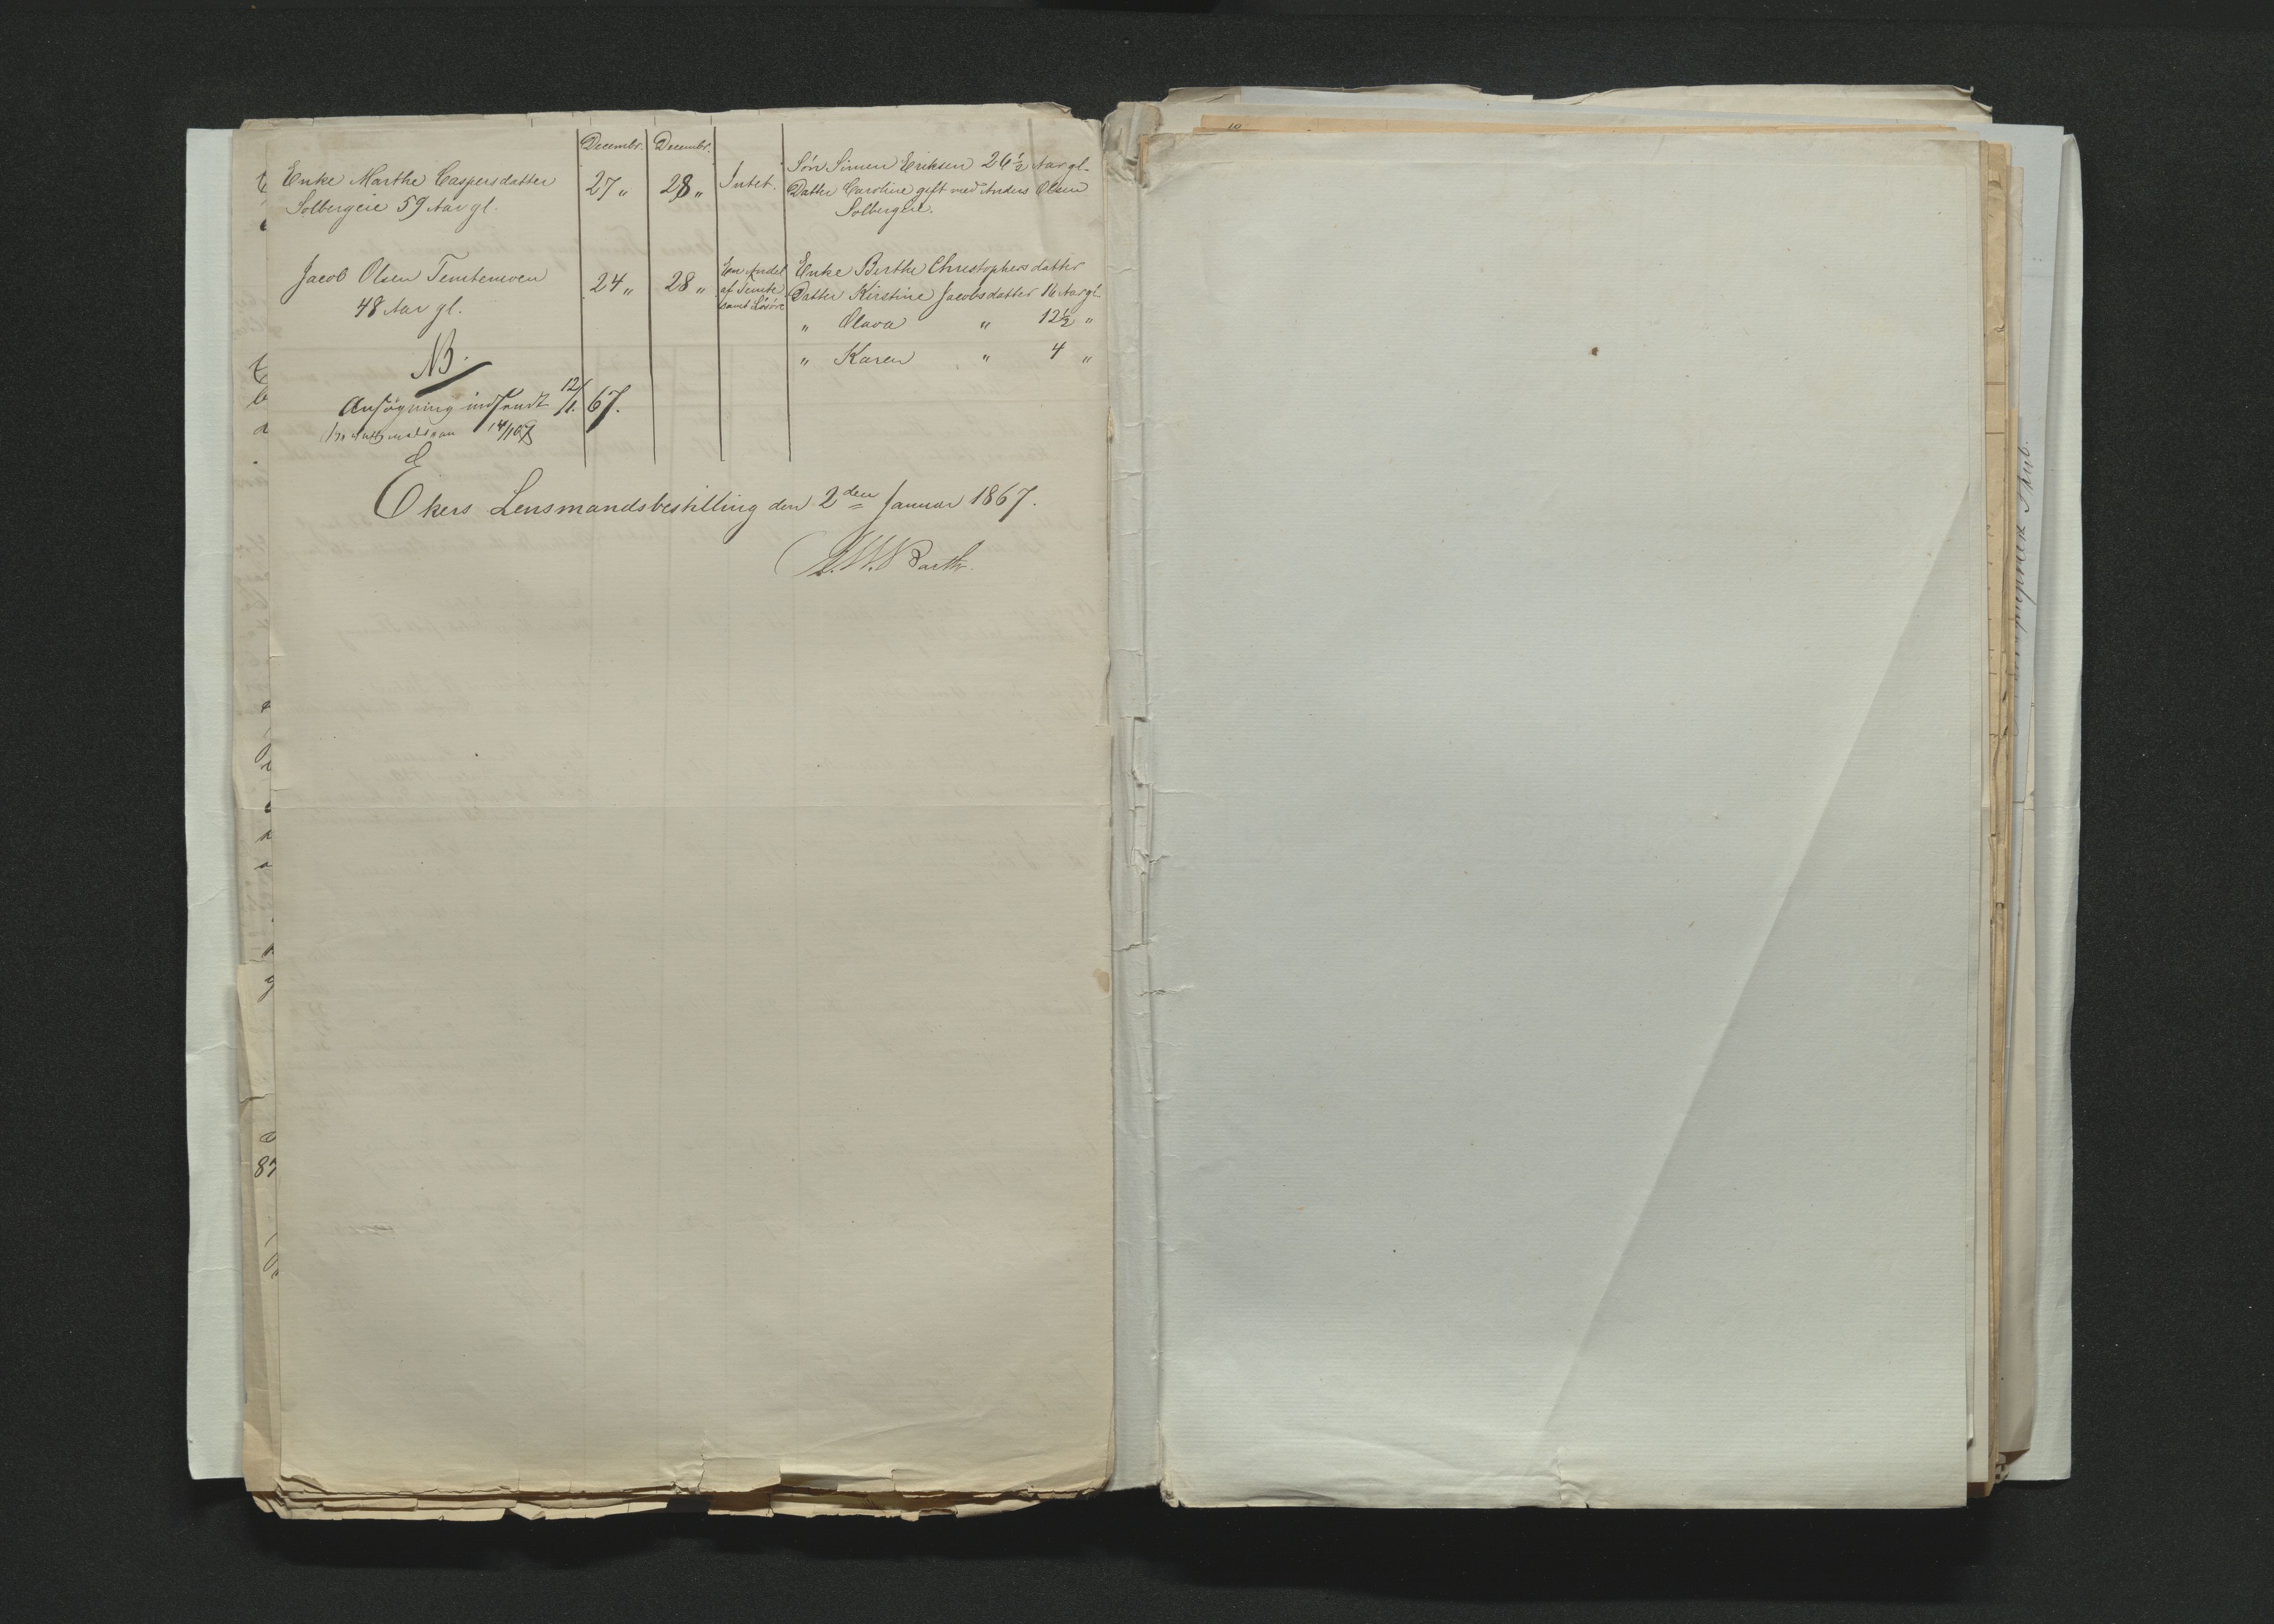 Decembr. Decembr.
Enke Marthe Caspersdatter 27 " 28 " Intet. Søn Simen Eriksen 26½ Aar gl.
Solbergeie 59 Aar gl. Datter Caroline gift med Anders Olsen
Solbergeie.
Jacob Olsen Temtemoen 24 " 28 " En Andel Enke Birthe Christophersdatter
48 Aar gl. af Temte Datter Kirstine Jacobsdatter 16 Aar gl.
samt Løsøre " Olava " 12½ "
" Karen " 4 "
NB.
Ansøgning indsendt 12/1. 67.
14/1 67
Ekers Lensmandsbestilling den 2den Januar 1867.
Barth.